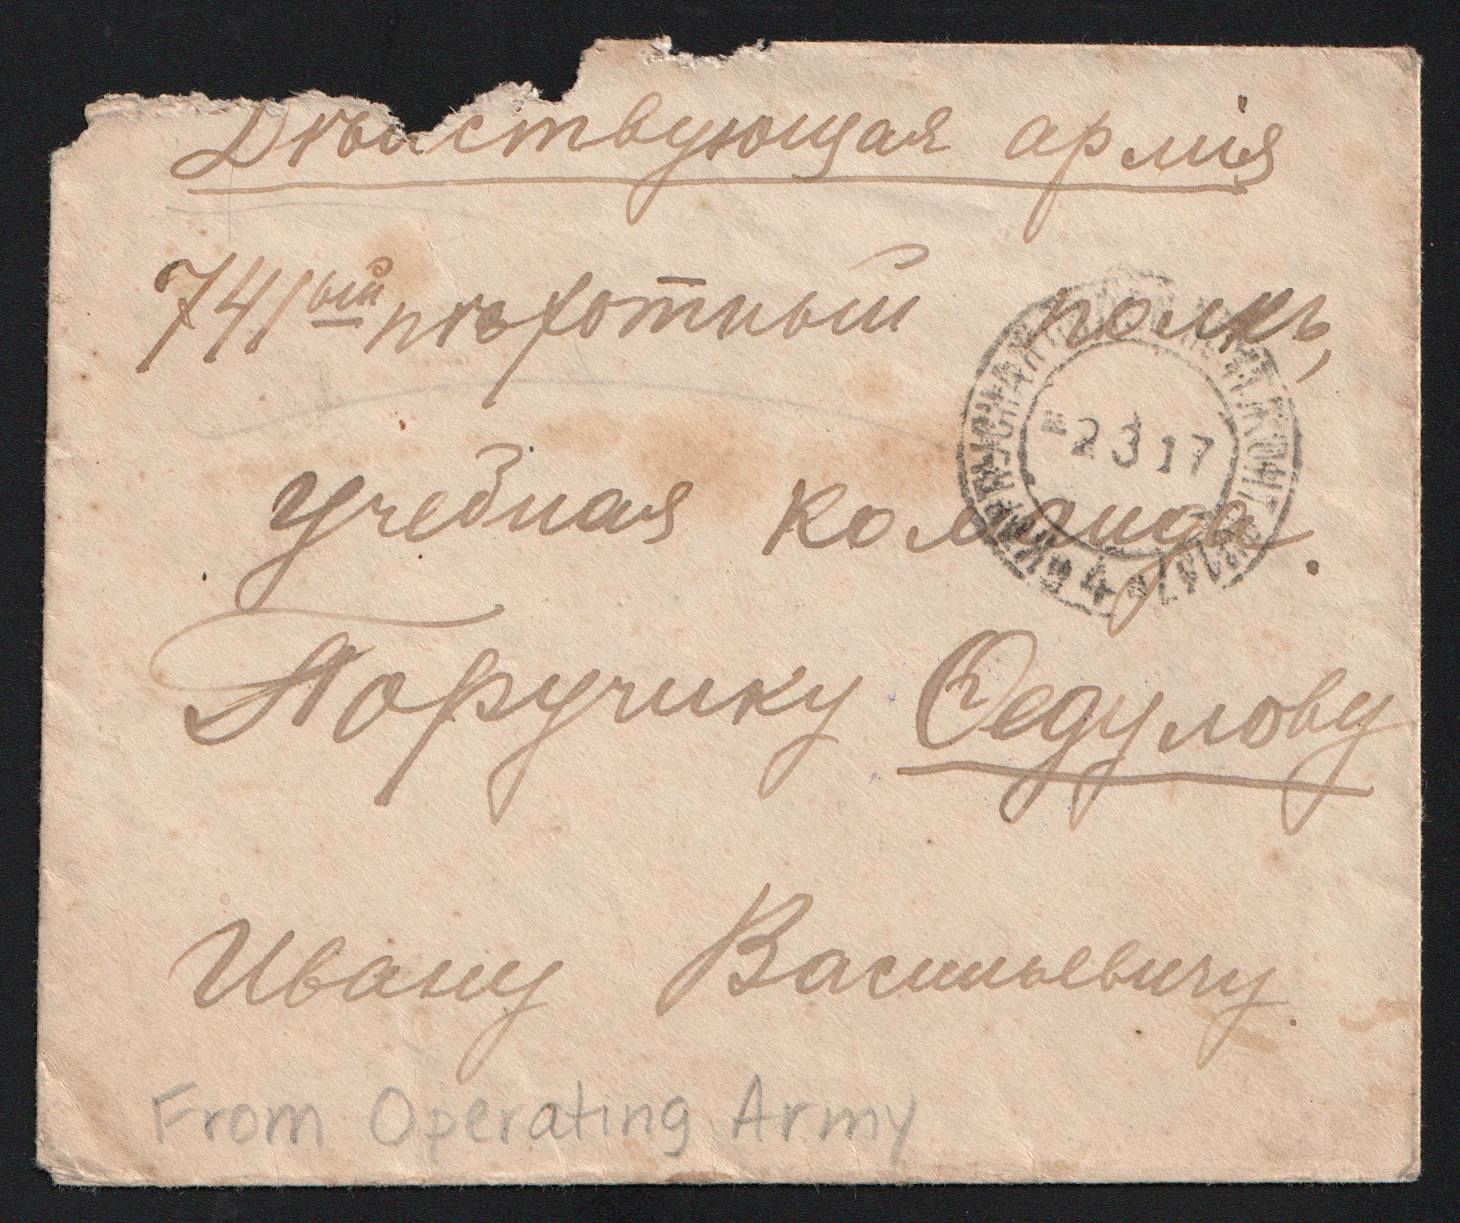 Дѣйствующая армія
741ый пѣхотный полкъ,
учебная команда.
2 3 17
Поручику Ѳедулову
Ивану Васильевичу.
From Operating Army